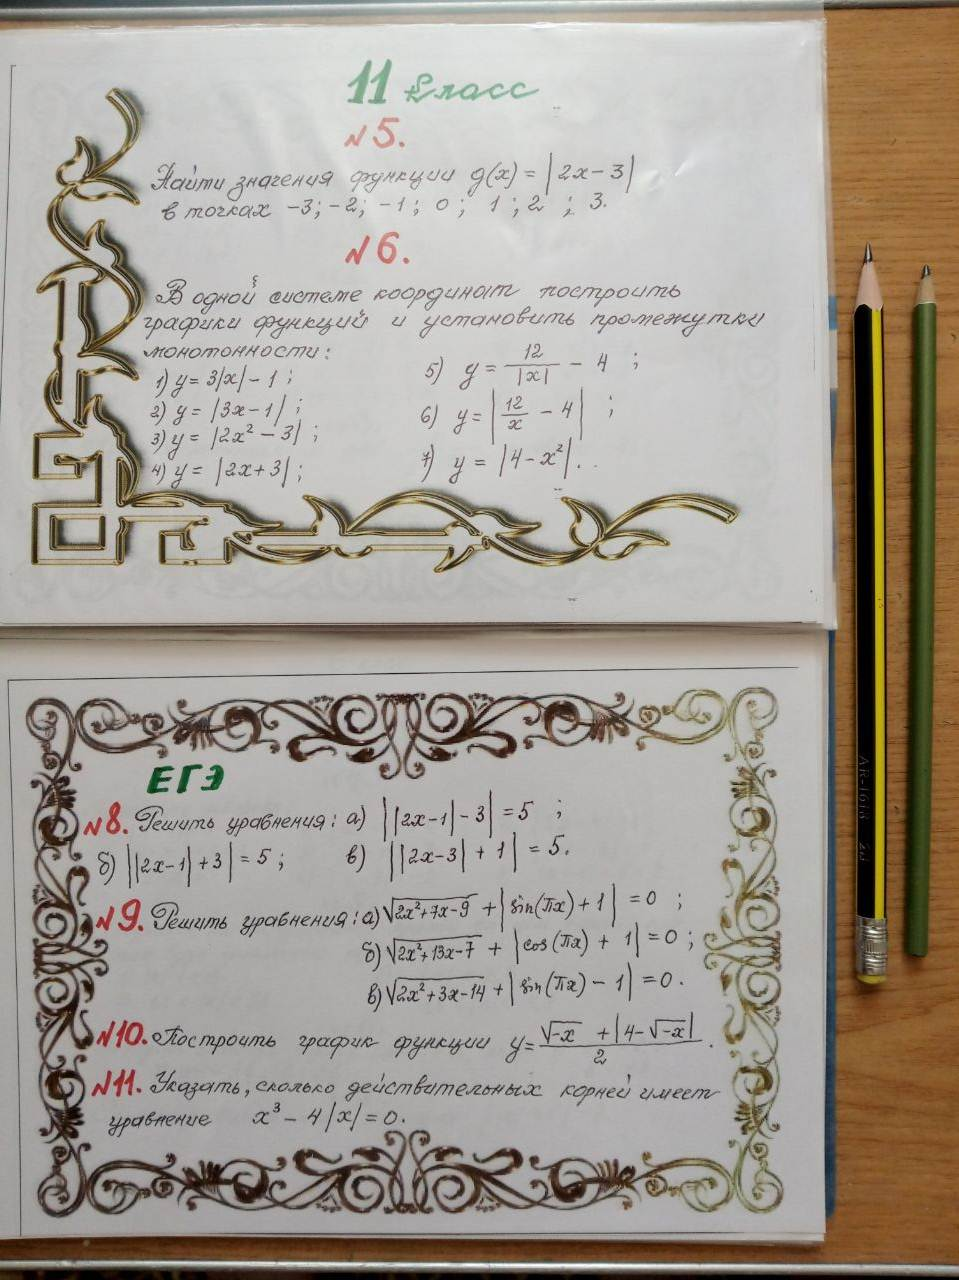 11 класс
№5.
Найти значения функции g(x) = |2x-3|
в точках -3; -2; -1; 0; 1; 2; 3.
№6.
В одной системе координат построить
графики функций и установить промежутки
монотонности:
1) y = 3|x| - 1;
2) y = |3x-1|;
3) y = |2x² - 3|;
4) y = |2x+3|;
5) y = 12/|x| - 4;
6) y = |12/x - 4|;
7) y = |4-x²|..
ЕГЭ
№8. Решить уравнения: а) ||2x-1|-3| = 5;
б) ||2x-1|+3| = 5; в) ||2x-3|+1| = 5.
№9. Решить уравнения: а) √(2x²+7x-9) + |sin(πx)+1| = 0;
б) √(2x²+13x-7) + |cos(πx)+1| = 0;
в) √(2x²+3x-14) + |sin(πx)-1| = 0.
№10. Построить график функции y = (√-x + |4-√-x|)/2.
№11. Указать, сколько действительных корней имеет
уравнение x³ - 4|x| = 0.
AR-1618 2B